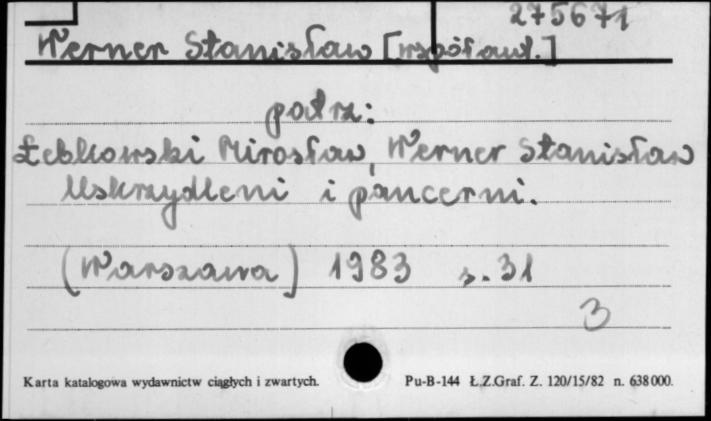 275671
Werner Stanisław [współaut.]
patrz:
Łebkowski Mirosław, Werner Stanisław
Uskrzydleni i pancerni.
(Warszawa) 1983 s. 31
3
Karta katalogowa wydawnictw ciągłych i zwartych. Pu-B-144 Ł.Z.Graf. Z. 120/15/82 n. 638000.